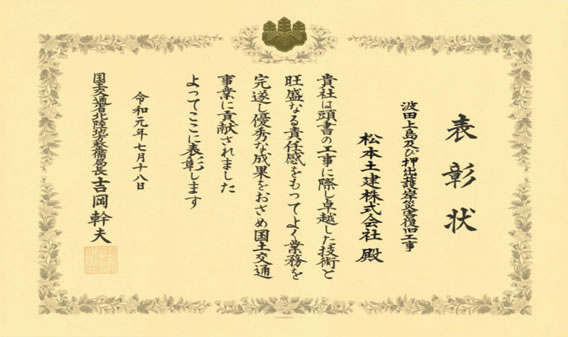 表彰状
波田上島及び押出護岸災害復旧工事
松本土建株式会社 殿
貴社は頭書の工事に際し卓越した技術と
旺盛なる責任感をもってよく業務を
完遂し優秀な成果をおさめ国土交通
事業に貢献されました
よってここに表彰します
令和元年七月十八日
国土交通省北陸地方整備局長 吉岡幹夫